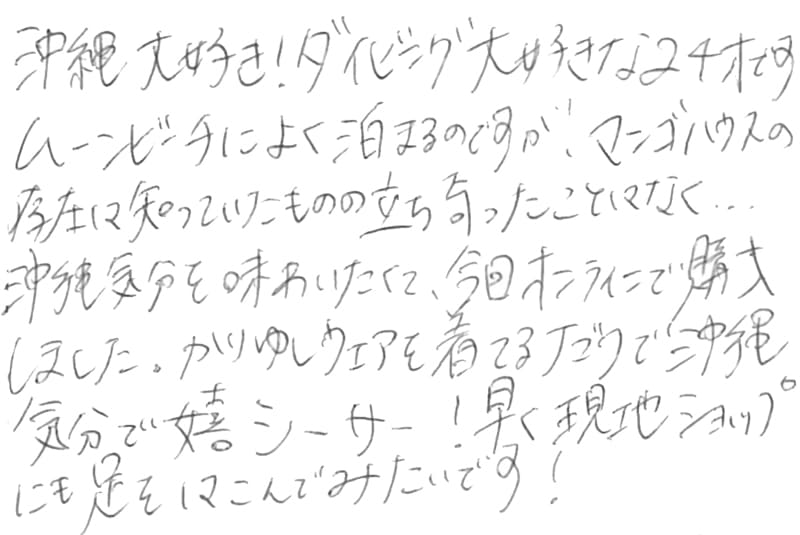 沖縄大好き!ダイビング大好きな24才です
ムーンビーチによく泊まるのですが、マンゴハウスの
存在は知っていたものの立ち寄ったことはなく...
沖縄気分を味わいたくて、今回オンラインで購入
しました。かりゆしウェアを着てるだけで沖縄
気分で嬉シーサー!早く現地ショップ
にも足をはこんでみたいです!